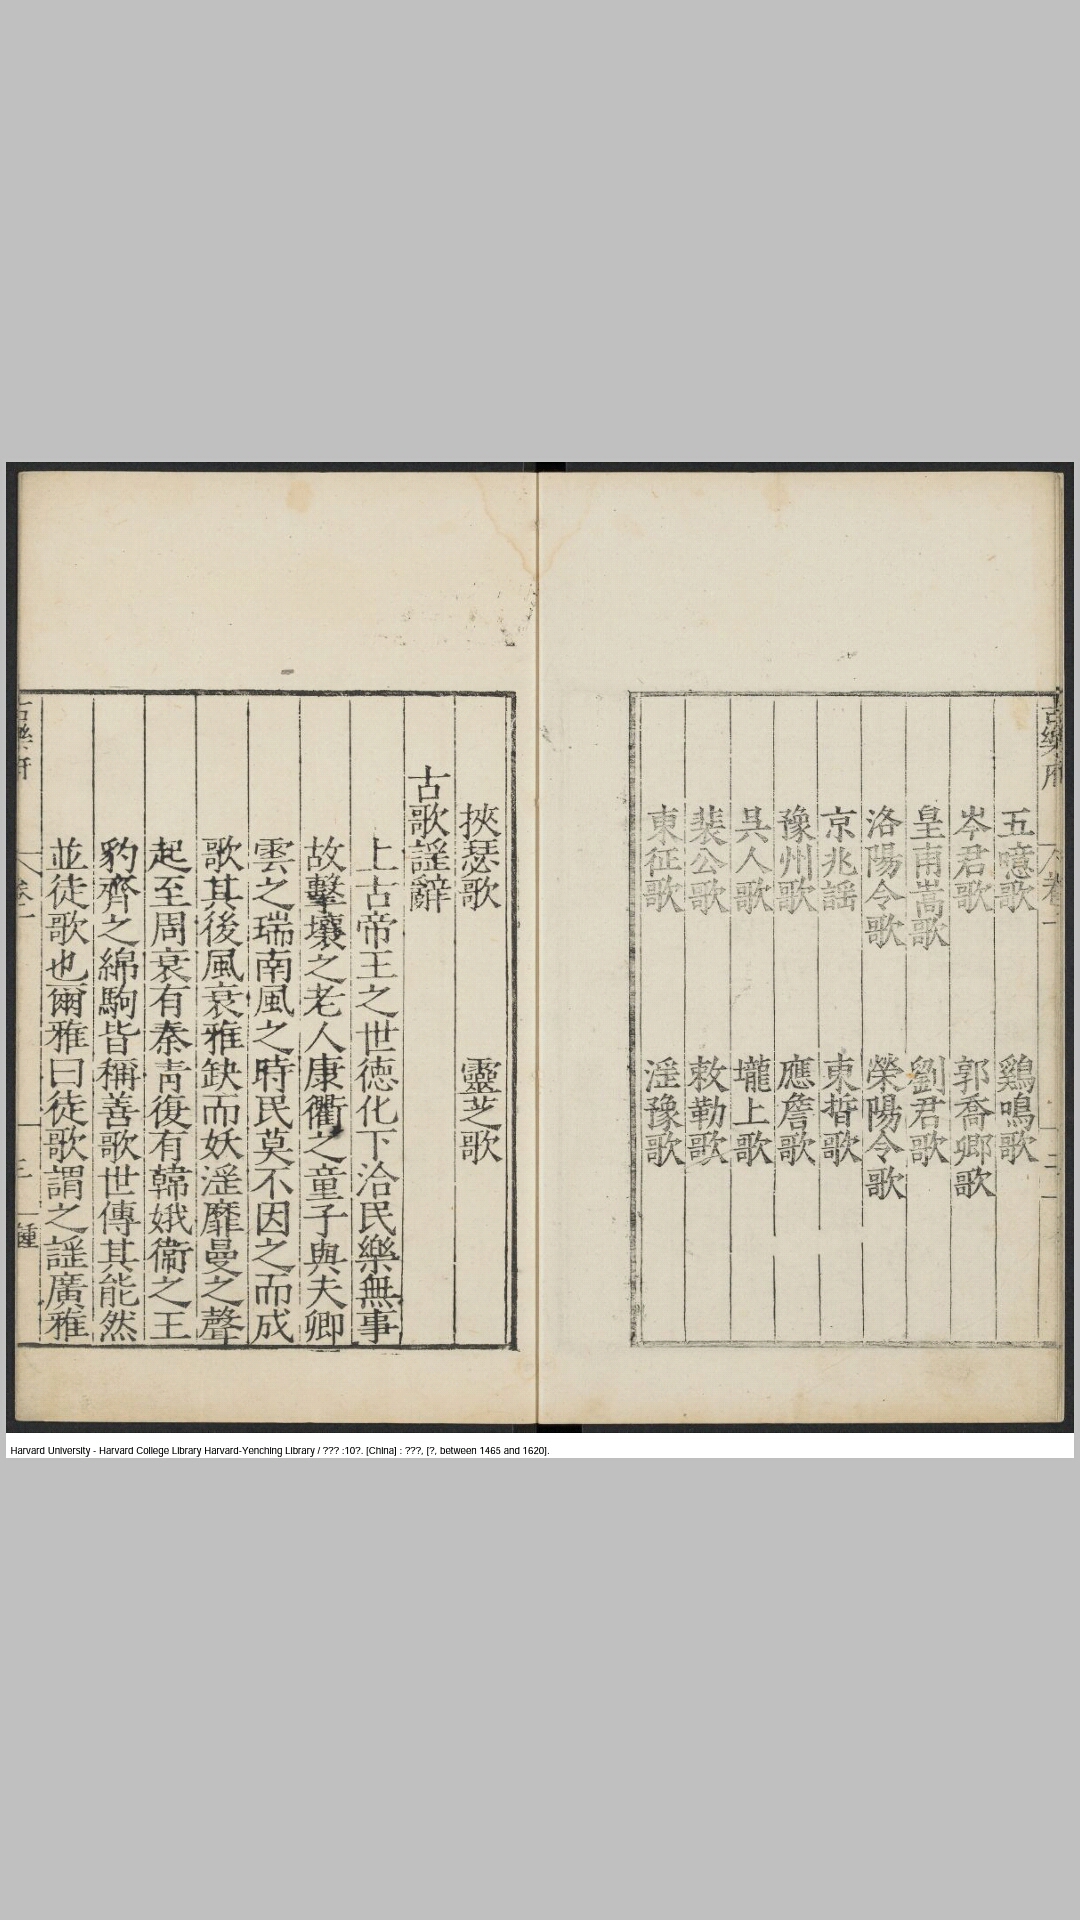 古樂府
卷一
二
五噫歌 鷄鳴歌
岑君歌 郭喬卿歌
皇甫嵩歌 劉君歌
洛陽令歌 榮陽令歌
京兆謡 東晳歌
豫州歌 應詹歌
吳人歌 壠上歌
裴公歌 敕勒歌
東征歌 滛豫歌
挾瑟歌 靈芝歌
古歌謡辭
上古帝王之世徳化下洽民樂無事
故擊壤之老人康衢之童子與夫卿
雲之瑞南風之時民莫不因之而成
歌其後風衰雅缺而妖滛靡曼之聲
起至周衰有秦靑復有韓娥衞之王
豹齊之綿駒皆稱善歌世傳其能然
並徒歌也爾雅曰徒歌謂之謡廣雅
Harvard University - Harvard College Library Harvard-Yenching Library / ??? :10?. [China] : ???, [?, between 1465 and 1620].